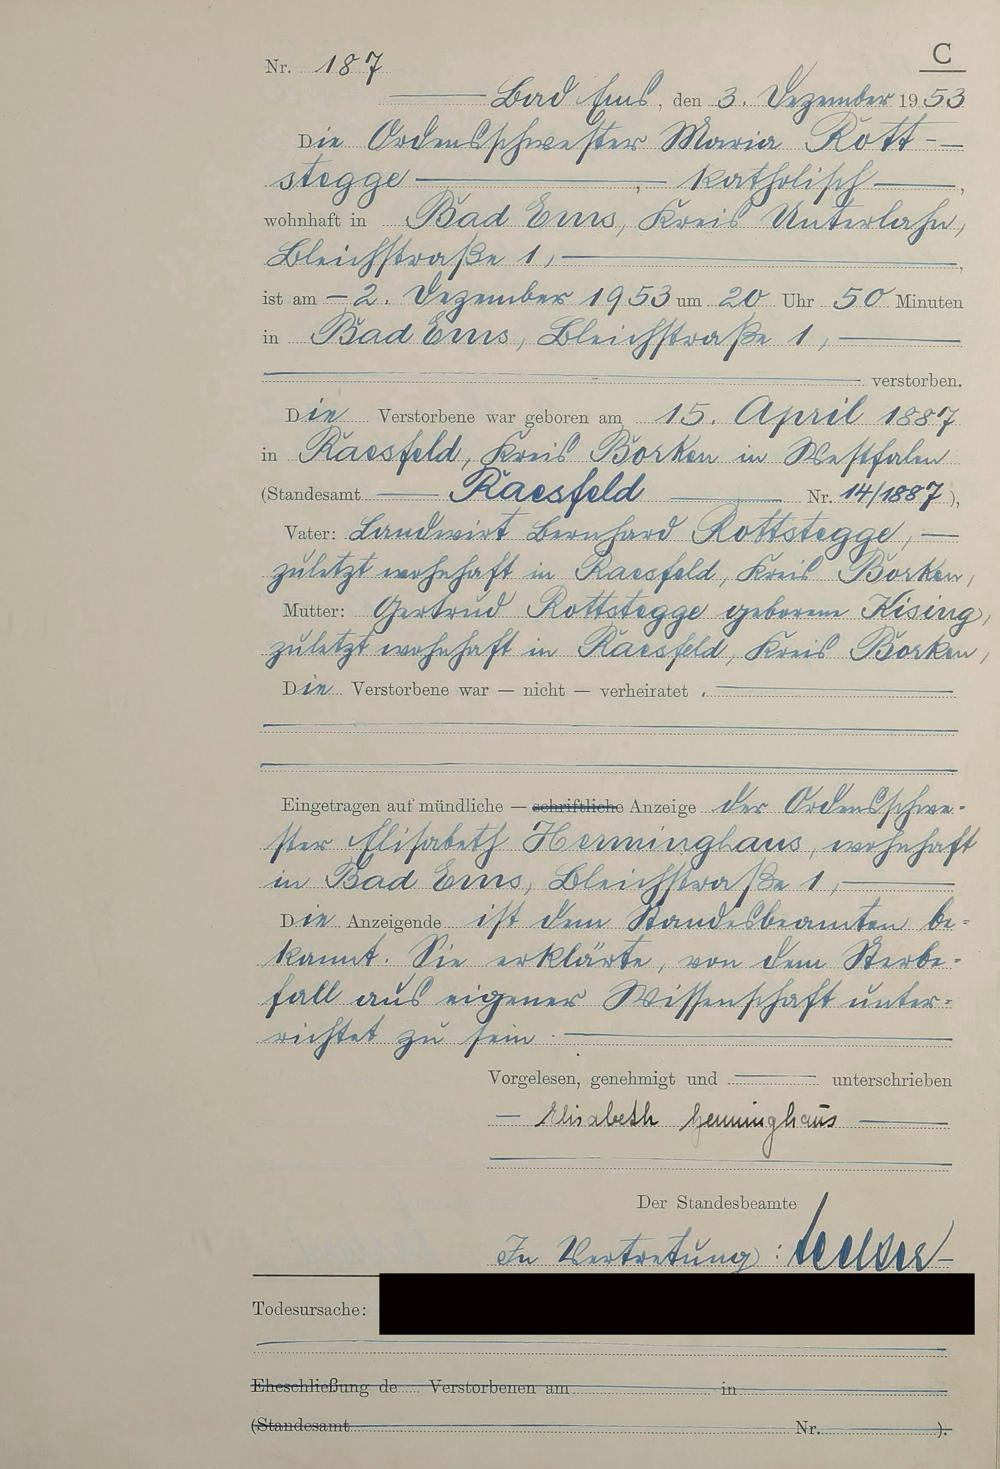 C
Nr. 187
Bad Ems, den 3. Dezember 1953
Die Ordensschwester Maria Rott-
stegge, katholisch,
wohnhaft in Bad Ems, Kreis Unterlahn,
Bleichstraße 1,
ist am 2. Dezember 1953 um 20 Uhr 50 Minuten
in Bad Ems, Bleichstraße 1,
verstorben.
Die Verstorbene war geboren am 15. April 1887
in Raesfeld, Kreis Borken in Westfalen
(Standesamt Raesfeld Nr. 14/1887),
Vater: Landwirt Bernhard Rottstegge,
zuletzt wohnhaft in Raesfeld, Kreis Borken,
Mutter: Gertrud Rottstegge geborene Kising,
zuletzt wohnhaft in Raesfeld, Kreis Borken,
Die Verstorbene war — nicht — verheiratet.
Eingetragen auf mündliche — schriftliche Anzeige der Ordensschwe-
ster Elisabeth Henninghaus, wohnhaft
in Bad Ems, Bleichstraße 1,
Die Anzeigende ist dem Standesbeamten be-
kannt. Sie erklärte, von dem Sterbe-
fall aus eigener Wissenschaft unter-
richtet zu sein.
Vorgelesen, genehmigt und unterschrieben
Elisabeth Henninghaus
Der Standesbeamte
In Vertretung:
Todesursache:
Eheschließung de Verstorbenen am in
(Standesamt Nr. ).